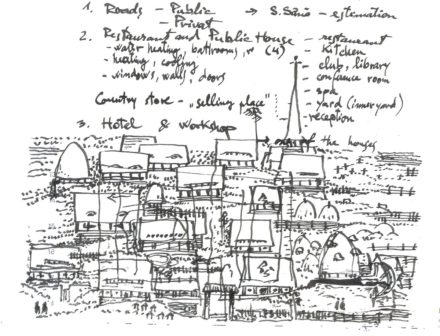 1. Roads - Public → S. Sáis - estemation
- Privat
2. Restaurant and Public House - restaurant
- water healing, bathrooms, (4) - kitchen
- healing, cooling - club, library
- windows, walls, doors - confuence room
- spa
Country store - „selling place" - yard (inner yard)
- reception
3. Hotel & Workshop
→ of the houses